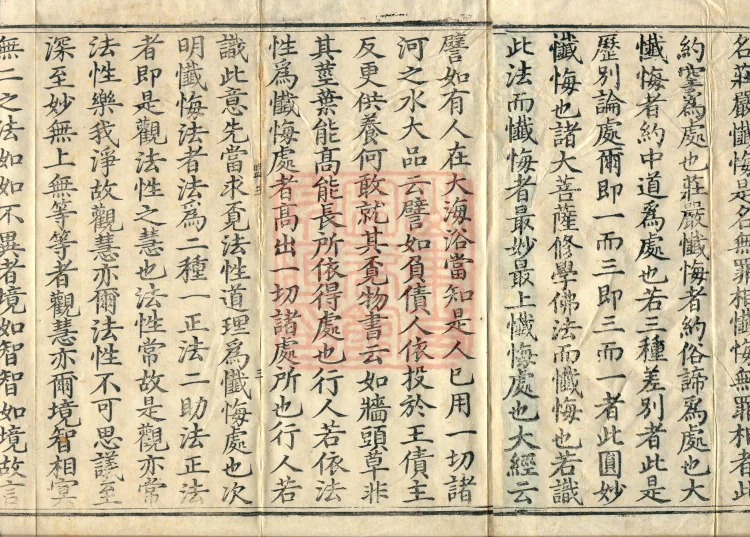 名莊嚴懺悔是名無罪相懺悔無罪相者此
約空爲處也莊嚴懺悔者約俗諦爲處也大
懺悔者約中道爲處也若三種差別者此是
歷別論處爾即一而三即三而一者此圓妙
懺悔也諸大菩薩修學佛法而懺悔也若識
此法而懺悔者最妙最上懺悔處也大經云
譬如有人在大海浴當知是人已用一切諸
河之水大品云譬如負債人依投於王債主
反更供養何敢就其覓物書云如牆頭草非
其莖葉能高能長所依得處也行人若依法
性爲懺悔處者高出一切諸處所也行人若
三
識此意先當求覓法性道理爲懺悔處也次
明懺悔法者法爲二種一正法二助法正法
者即是觀法性之慧也法性常故是觀亦常
法性樂我淨故觀慧亦爾法性不可思議至
深至妙無上無等等者觀慧亦爾境智相冥
無二之法如如不異者境如智智如境故言